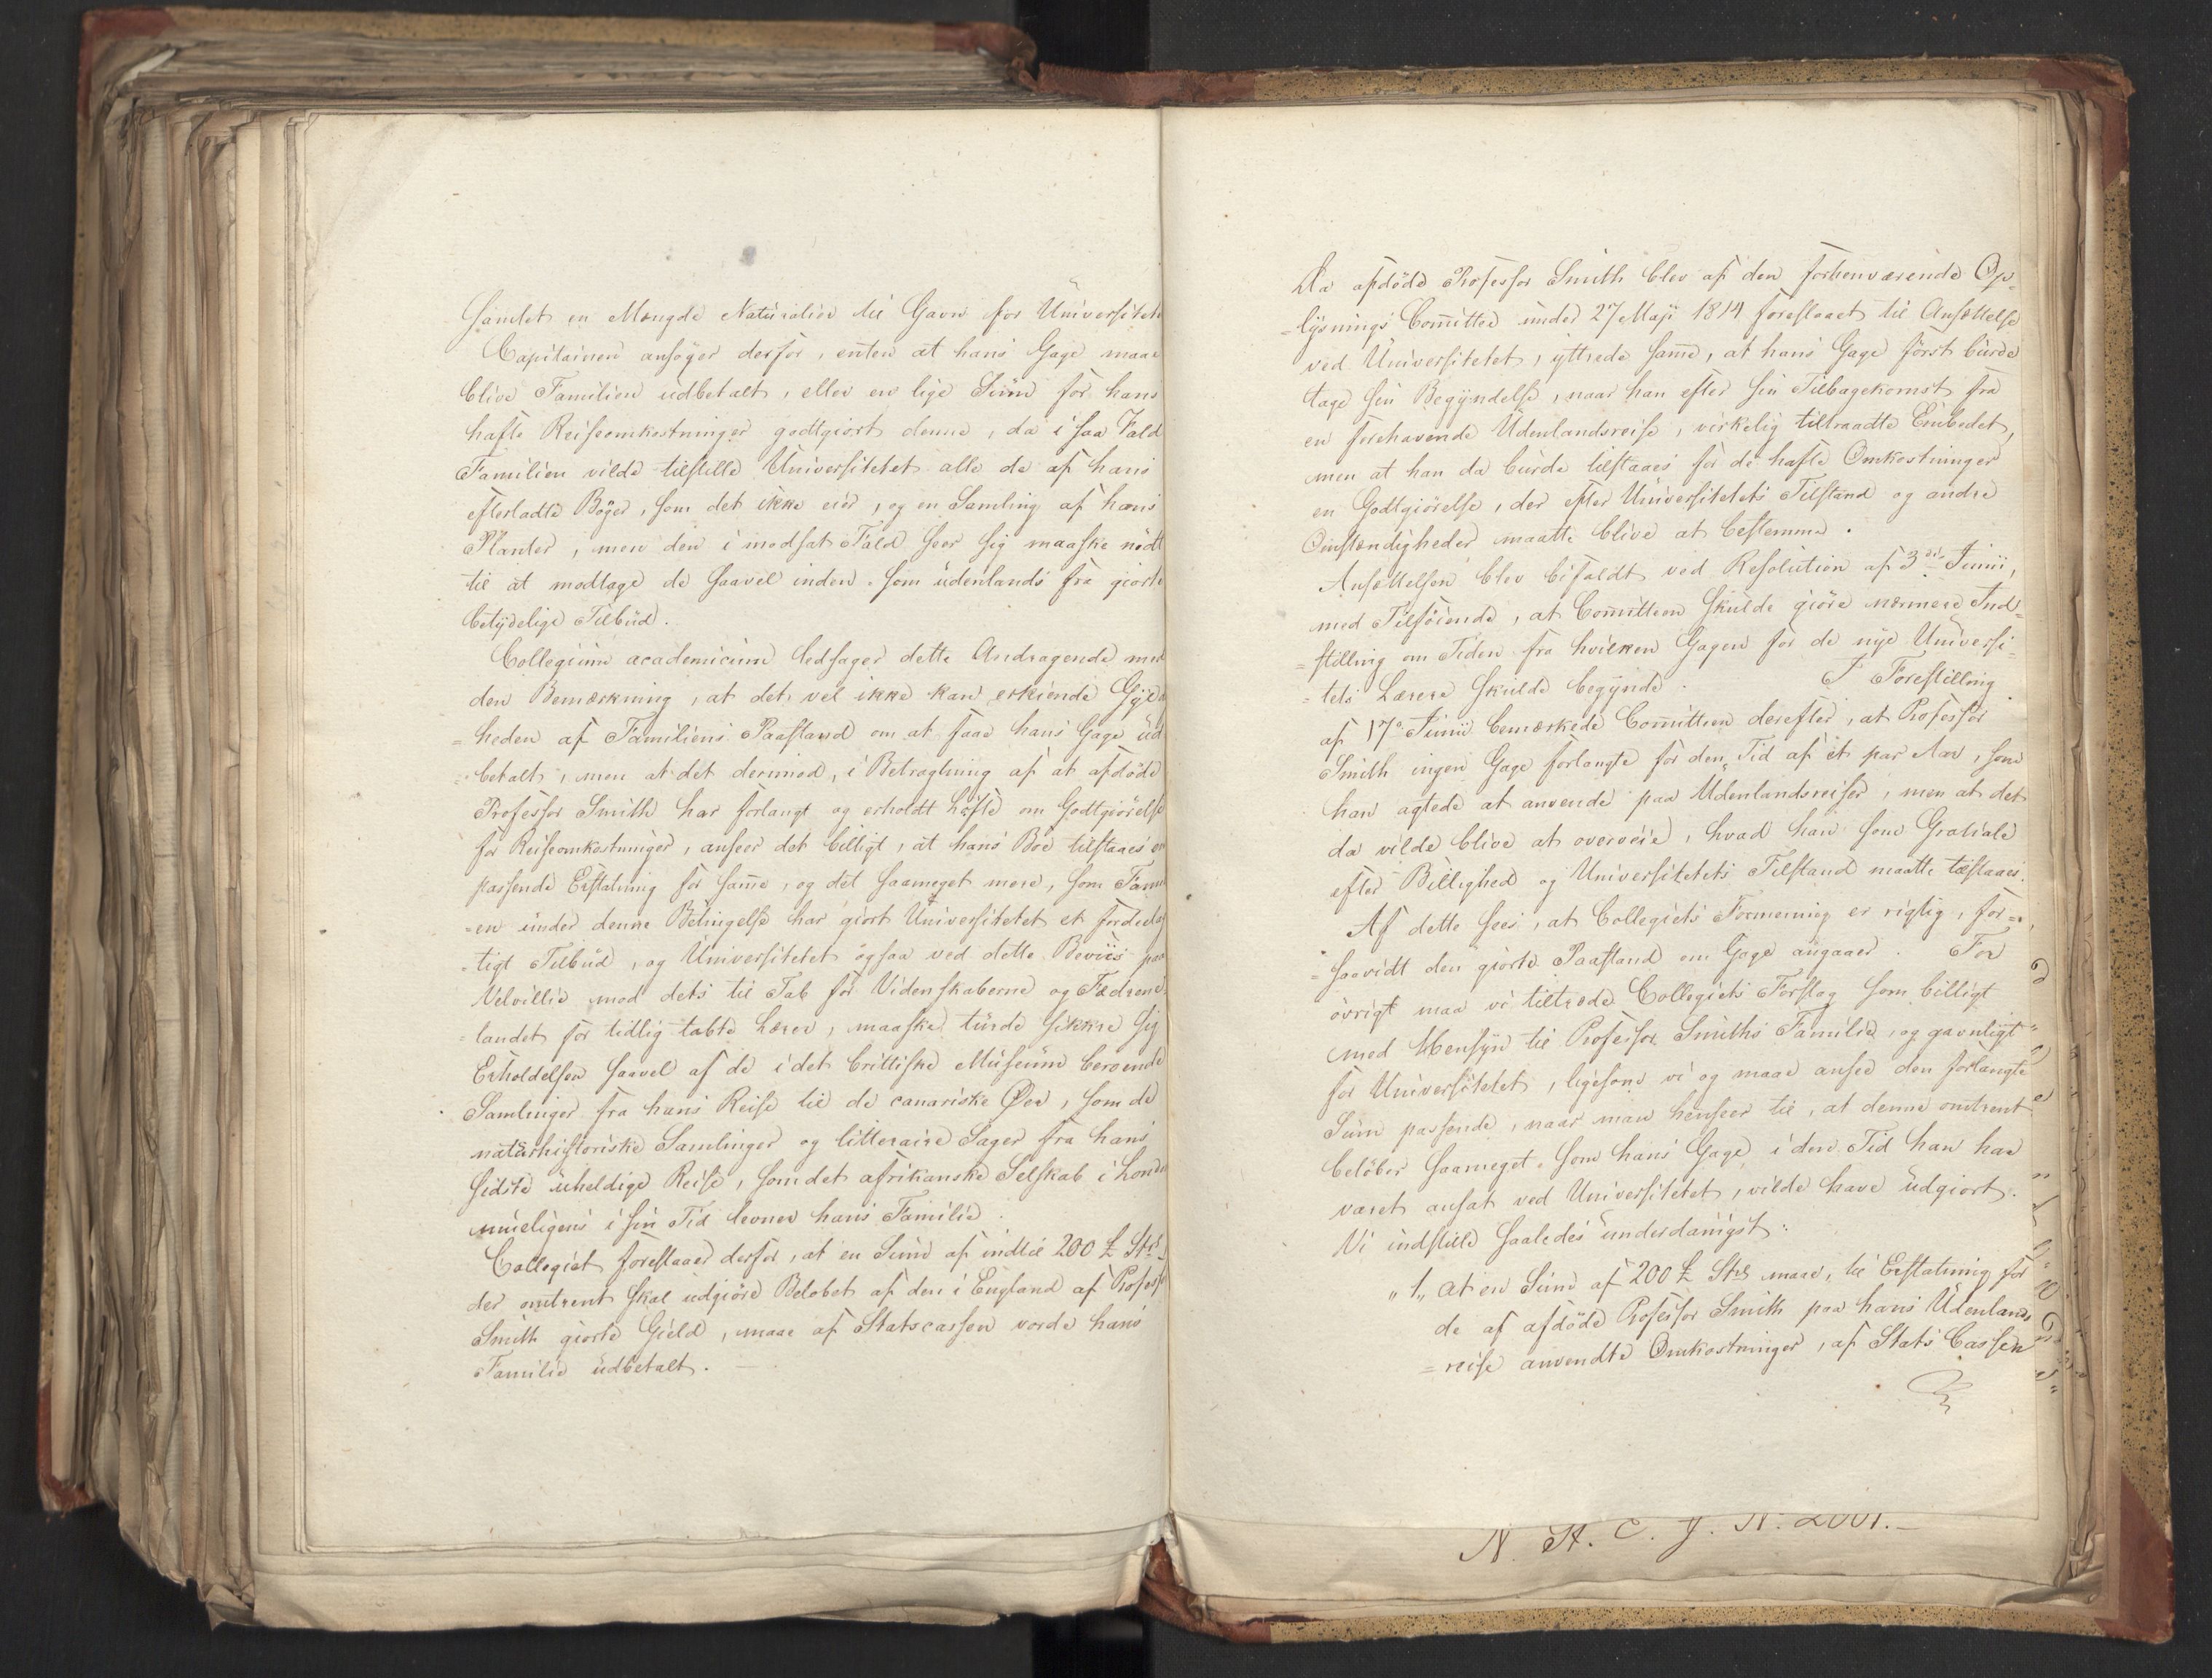 samlet en Mengde Naturalier til Gavn for Universitete
Capitainen ansøger derfor, enten at hans Gage maae
blive Familien udbetalt, eller en lige Sum for hans
hafte Reiseomkostninger godtgiort denne, da i saa Fald
Familien vilde tilstille Universitetet alle de af hans
efterladte Bøger, som det ikke eier, og en Samling af hans
Planter, men den i modsat Fald seer sig maaske nødt
til at modtage de saavel inden- som udenlands fra giorte
betydelige Tilbud.
Collegium academicum ledsager dette Andragende med
den Bemærkning, at det vel ikke kan erkiende Gyld
=heden af Familiens Paastand om at faae hans Gage ud
=betalt, men at det derimod, i Betragtning af at afdøde
Professor Smith har forlangt og erholdt Løfte om Godtgiørelse
for Reiseomkostninger, anseer det billigt, at hans Boe tilstaaes en
passende Erstatning for samme, og det saameget mere, som Fami
=en under denne Betingelse har giort Universitetet et fordeel
=tigt Tilbud, og Universitetet ogsaa ved dette Beviis paa
Velvillie mod dets til Tab for Videnskaberne og Fædrene
=landet for tidlig tabte Lærer, maaske turde sikkre sig
Erholdelsen saavel af de i det brittiske Museum beroende
Samlinger fra hans Reise til de canariske Øer, som de
naturhistoriske Samlinger og litteraire Sager fra hans
sidste uheldige Reise, som det afrikanske Selskab i Lond
mueligens i sin Tid levner hans Familie.
Collegiet foreslaaer derfor, at en Sum af indtil 200 £ Str
der omtrent skal udgiøre Beløbet af den i England af Profess
Smith giorte Gield, maae af Statscassen vorde hans
Familie udbetalt. —
Da afdøde Professor Smith blev af den forhenværende Op-
=lysnings Comittee under 27 Maji 1814 foreslaaet til Ansættelse
ved Universitetet, yttrede samme, at hans Gage først burde
tage sin Begyndelse, naar han efter sin Tilbagekomst fra
en forehavende Udenlandsreise, virkelig tiltraadte Embedet,
men at han da burde tilstaaes for de hafte Omkostninger
en Godtgiørelse, der efter Universitetets Tilstand og andre
Omstændigheder maatte blive at bestemme.
Ansættelsen blev bifaldt ved Resolution af 3die Junii,
med Tilføiende, at Comitteen skulde giøre nærmere Ind-
=stilling om Tiden fra hvilken Gagen for de nye Universi-
=tets Lærere skulde begynde. I Forestilling
af 17de Junii bemærkede Comitteen derefter, at Professor
Smith ingen Gage forlangte for den Tid af et par Aar, som
han agtede at anvende paa Udenlandsreiser, men at det
da vilde blive at overveie, hvad han som Gratiale
efter Billighed og Universitetets Tilstand maatte tilstaaes.
Af dette sees, at Collegiets Formening er rigtig, for-
=saavidt den giorte Paastand om Gage angaaer. For
øvrigt maa vi tiltræde Collegiets Forslag som billigt
med Hensyn til Professor Smiths Familie, og gavnligt
for Universitetet, ligesom vi og maae ansee den forlangte
Sum passende, naar man henseer til, at denne omtrent
beløber saameget som hans Gage i den Tid han har
været ansat ved Universitetet, vilde have udgiort.
Vi indstille saaledes underdanigst:
"1, at en Sum af 200 £ Strl maae, til Erstatning for
de af afdøde Professor Smith paa hans Udenlands
=reise anvendte Omkostninger, af Stats Cassen
N. A. C. J. N. 2001.—